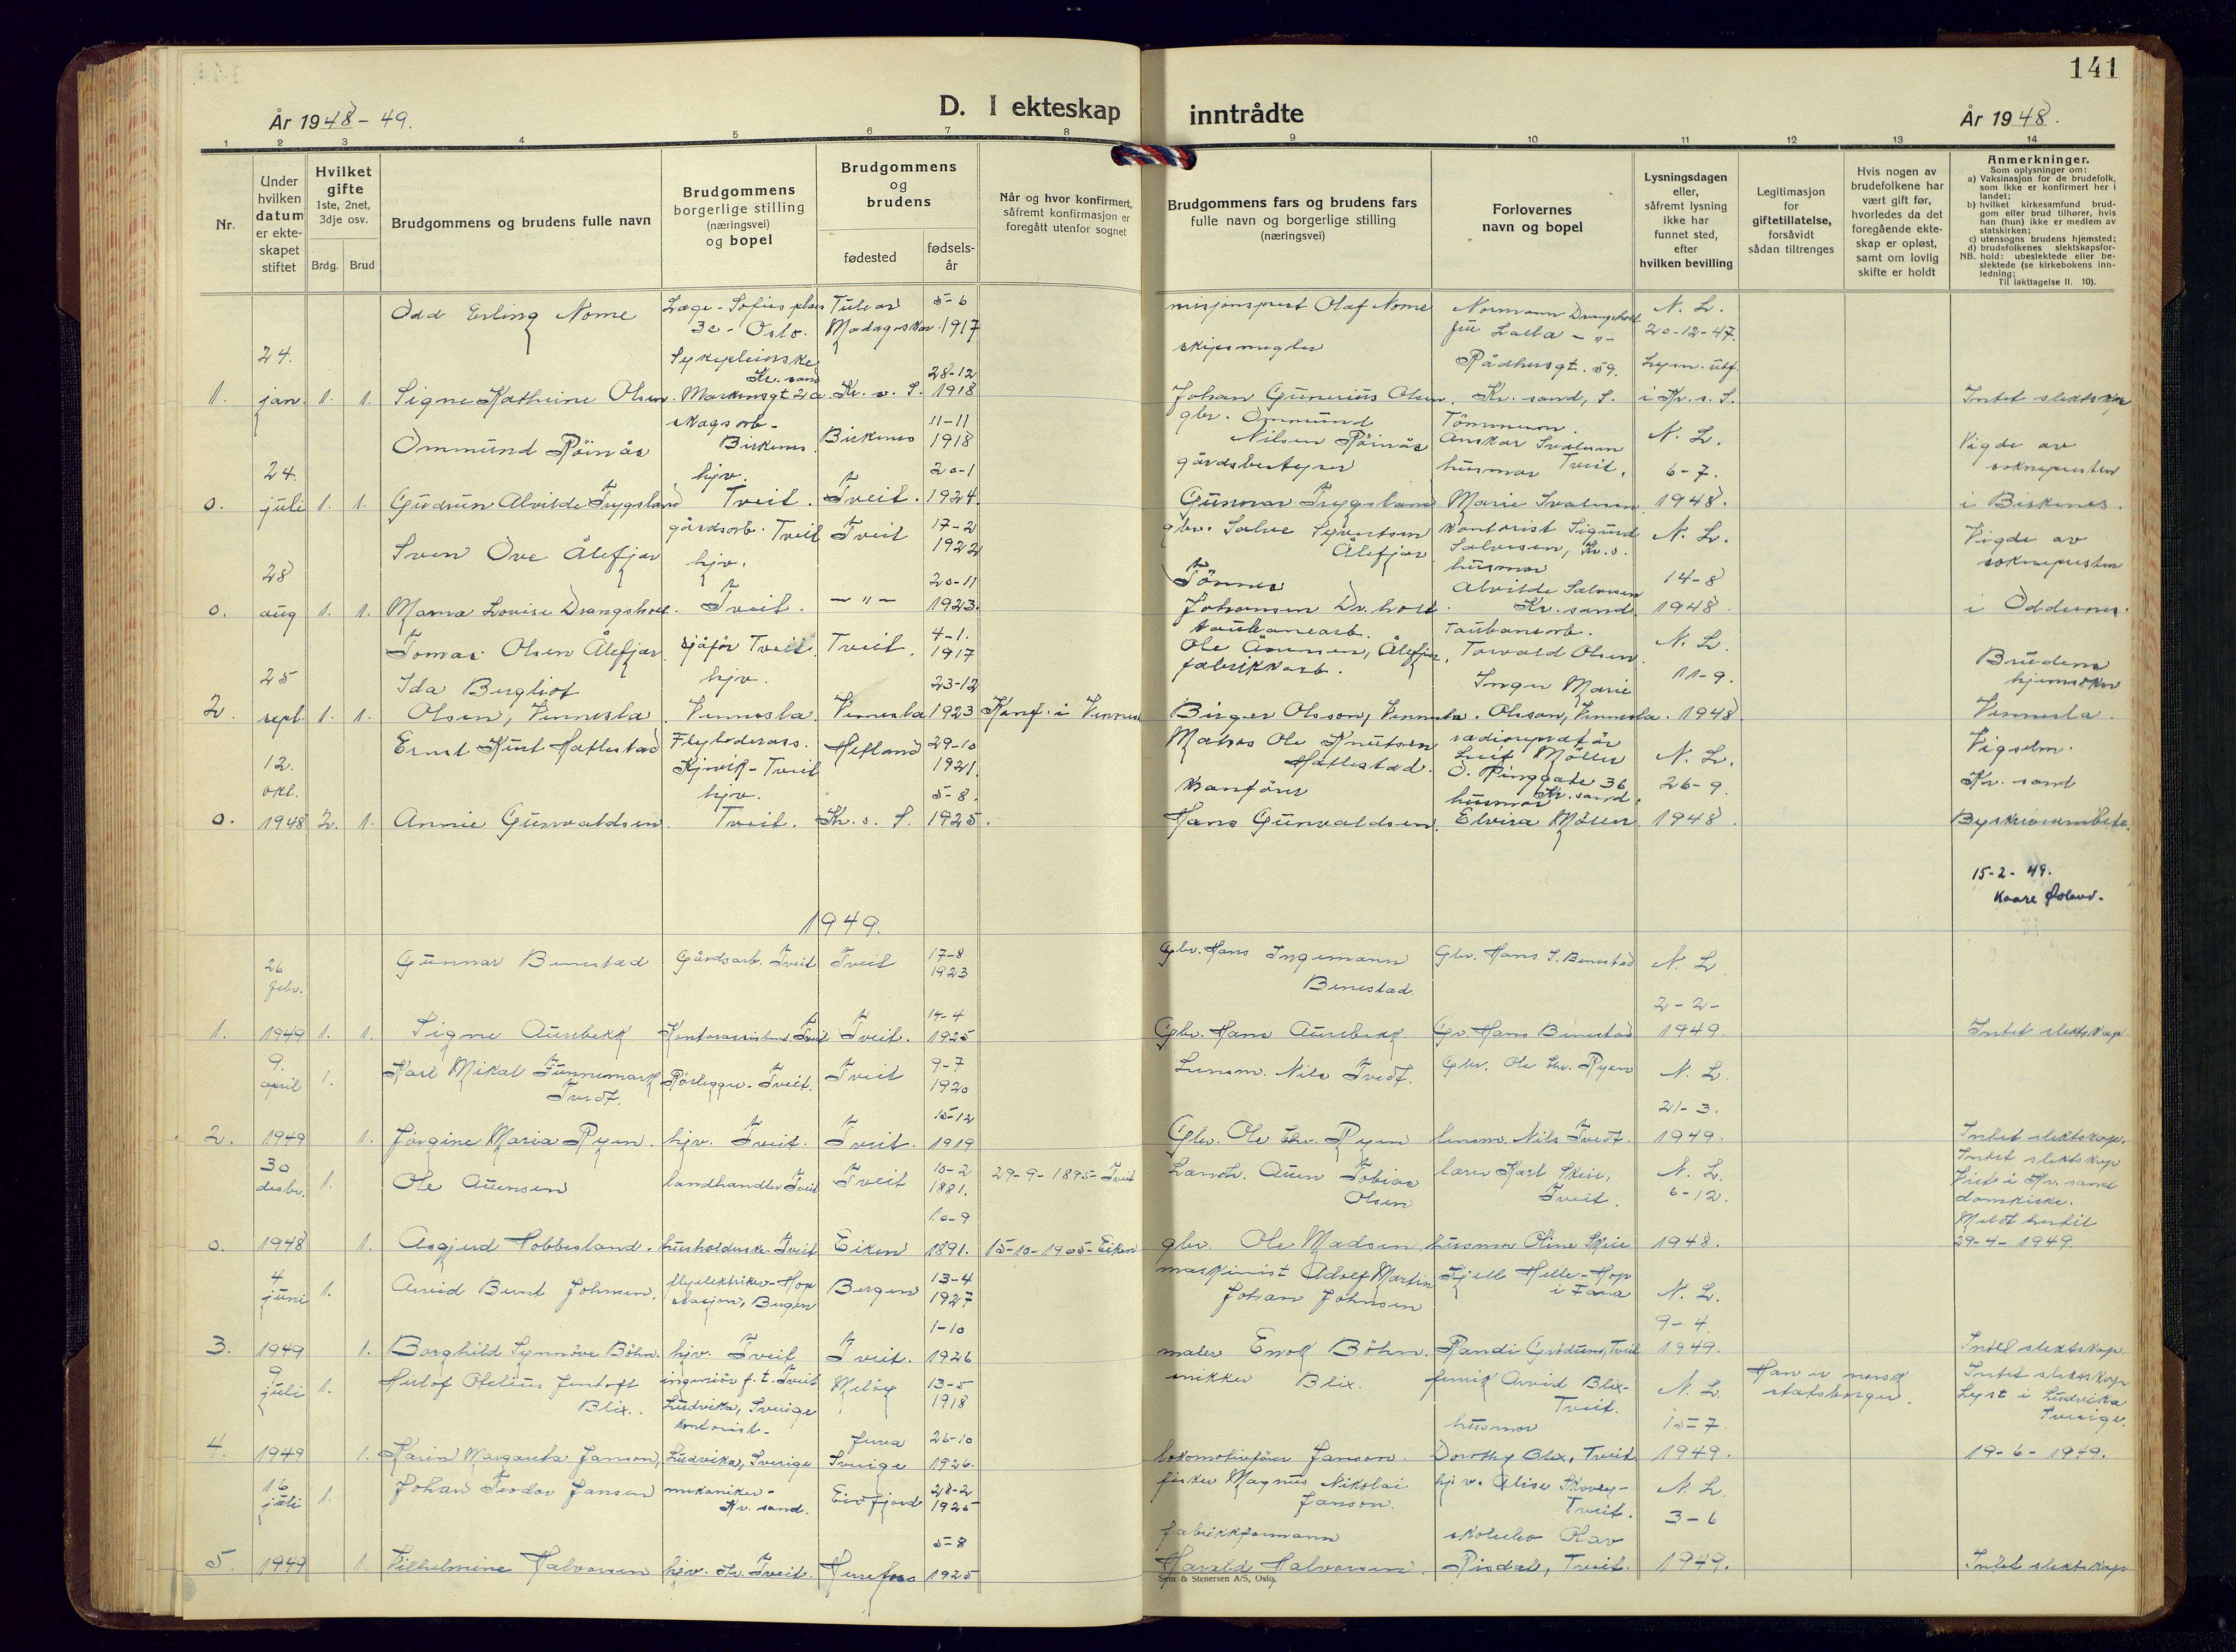 141
År 1948 - 49.
D. I ekteskap inntrådte
År 1948.
1 2 3 4 5 6 7 8 9 10 11 12 13 14
Nr.
Under hvilken datum er ekteskapet stiftet
Hvilket gifte 1ste, 2net, 3dje osv.
Brdg. Brud
Brudgommens og brudens fulle navn
Brudgommens borgerlige stilling (næringsvei) og bopel
Brudgommens og brudens
fødested
fødselsår
Når og hvor konfirmert, såfremt konfirmasjon er foregått utenfor sognet
Brudgommens fars og brudens fars fulle navn og borgerlige stilling (næringsvei)
Forlovernes navn og bopel
Lysningsdagen eller, såfremt lysning ikke har funnet sted, efter hvilken bevilling
Legitimasjon for giftetillatelse, forsåvidt sådan tiltrenges
Hvis nogen av brudefolkene har vært gift før, hvorledes da det foregående ekteskap er opløst, samt om lovlig skifte er holdt
Anmerkninger.
Som oplysninger om:
a) Vaksinasjon for de brudefolk, som ikke er konfirmert her i landet;
b) hvilket kirkesamfund brudgom eller brud tilhører, hvis han (hun) ikke er medlem av statskirken;
c) utensogns brudens hjemsted;
d) brudefolkenes slektskapsforhold: ubeslektede eller beslektede (se kirkebokens innledning;
NB.
Til iakttagelse II. 10).
Odd Erling Nome Læge - Sofies plass 3c - Oslo. Tulear Madagaskar 5-6 1917 misjonsprest Olaf Nome Normann Drangsholt fru Lalla - " - N. L. 20-12-47.
1. 24. jan. 1. 1. Signe Kathrine Olsen. Sykepleierske Kr. sand Markensgt 2a. Kr. s. S. 28-12 1918 skipsmegler Johan Gunerius Olsen. Rådhusgt. 59. Kr. sand, S. Lysn. utf. i Kr. s. S. Intet slektskap
Ommund Röinås skogsarb - Birkenes. Birkenes 11-11 1918 gbr. Ommund Nilsen Röinås Tömmerm. Anskar Ivalsen N. L. Vigde av
0. 24. juli 1. 1. Gudrun Alvilde Trygsland hjv. Tveit. Tveit. 20-1 1924. gårdsbestyrer Gunnar Trygsland husmor Tveit. Marie Ivalsen 6-7. 1948. soknepresten i Birkenes.
Sven Ove Ålefjær gårdsarb. Tveit Tveit 17-2 1922 gbr. Salve Syvertsen Ålefjær kontorist Sigurd Salvesen, Kr. s. N. L. Vigde av
0. 28 aug 1. 1. Mama Lovise Drangsholt. hjv. Tveit. - " - 20-11 1923. Tönnes Johansen Dr. holt. husmor Alvilde Salvesen Kr. sand 14-8 1948. soknepresten i Oddernes.
Tomas Olsen Ålefjær sjåför Tveit. Tveit. 4-1. 1917 taubanearb. Ole Aanensen, Ålefjær. Taubanearb. Torvald Olsen. N. L. Brudens
2. 25 sept. 1. 1. Ida Bergliot Olsen, Vennesla hjv. Vennesla. Vennesla 23-12 1923 Konf. i Vennesla fabrikkarb. Birger Olsson, Vennesla. Inger Marie Olsson, Vennesla. 11-9. 1948. hjemsokn Vennesla.
Ernst Kurt Hatlestad Flylederass. Kjevik - Tveit Hetland 29-10 1921. Matros Ole Knutsen Hatlestad. radioreparatör Leif Möller Ö. Ringgate 36 Kr. sand. N. L. Vigselm.
0. 12. okt. 1948 2. 1. Annie Gunvaldsen. hjv. Tveit. Kr. s. S. 5-8. 1925. Hans Gunvaldsen. husmor Elvira Möller 26-9. 1948. Kr. sand Byskriverembete.
15-2-49.
1949.
Gunnar Benestad Gårdsarb. Tveit Tveit 17-8 1923 Gbr. Hans Ingemann Benestad. Gbr. Hans I. Benestad N. L.
1. 26 febr. 1949 1. 1. Signe Aurebekk Kontorassistent Tveit Tveit. 14-4 1925 Gbr. Hans Aurebekk Gr. Hans Benestad 2-2- 1949. Intet slektskap
9. april 1. Karl Mikal Tunnemark Tvedt. Rörlegger. Tveit. Tveit 9-7 1920 Lensm. Nils Tvedt. Gbr. Ole Chr. Ryen N. L.
2. 1949 1. Jörgine Maria Ryen. hjv. Tveit. Tveit. 15-12 1919 Gbr. Ole Chr. Ryen lensm. Nils Tvedt. 21-3. 1949. Intet slektskap.
30 desbr. 1. Ole Auensen landhandler Tveit Tveit 10-2 1881. 29-9-1895- Tveit Landh. Auen Tobias Olsen lærer Karl Skeie, Tveit. N. L. 6-12. Intet slektskap Viet i Kr. sand domkirke.
0. 1948 1. Asgjerd Hobbesland. husholderske. Tveit Eiken 10-9 1891. 15-10-1905- Eiken gbr. Ole Madsen husmor Oline Skeie 1948. Meldt hertil 29-4-1949.
4 juni 1. Arvid Bernt Johnsen. flyelektriker - Hop stasjon, Bergen Bergen 13-4 1927 maskinist Adolf Martin Johan Johnsen Kjell Helle - Hop i Fana N. L.
3. 1949 1. Borghild Synnöve Böhn. hjv. Tveit Tveit. 1-10 1926 maler Enok Böhn. Randi Grödum, Tveit 9-4. 1949. Intet slektskap
9 juli 1. Herlof Ofelius Jentoft Blix. ingeniör f. t. Tveit Ludvika, Sverige Meløy 13-5 1918 snikker Blix. fenrik Arvid Blix - Tveit. N. L. Han er norsk statsborger. Intet slektskap Lyst i Ludvika Sverige.
4. 1949 1. Karin Margareta Janson, kontorist - Ludvika, Sverige Sverige 26-10 1926. lokomotivförer Janson. husmor Dorothy Blix, Tveit 15-7 1949. 19-6-1949.
16 juli 1. Johan Teodor Janson mekaniker - Kr. sand. Eidfjord 28-2 1925 fisker Magnus Nikolai Janson. hjv. Elise - Tveit. N. L.
5. 1949 1. Vilhelmine Halvorsen hjv. Tveit. Herefoss 5-8 1925 fabrikkformann Harald Halvorsen. Olav Risdal, Tveit. 3-6 1949. Intet slektskap
Sem & Stenersen A/S, Oslo.